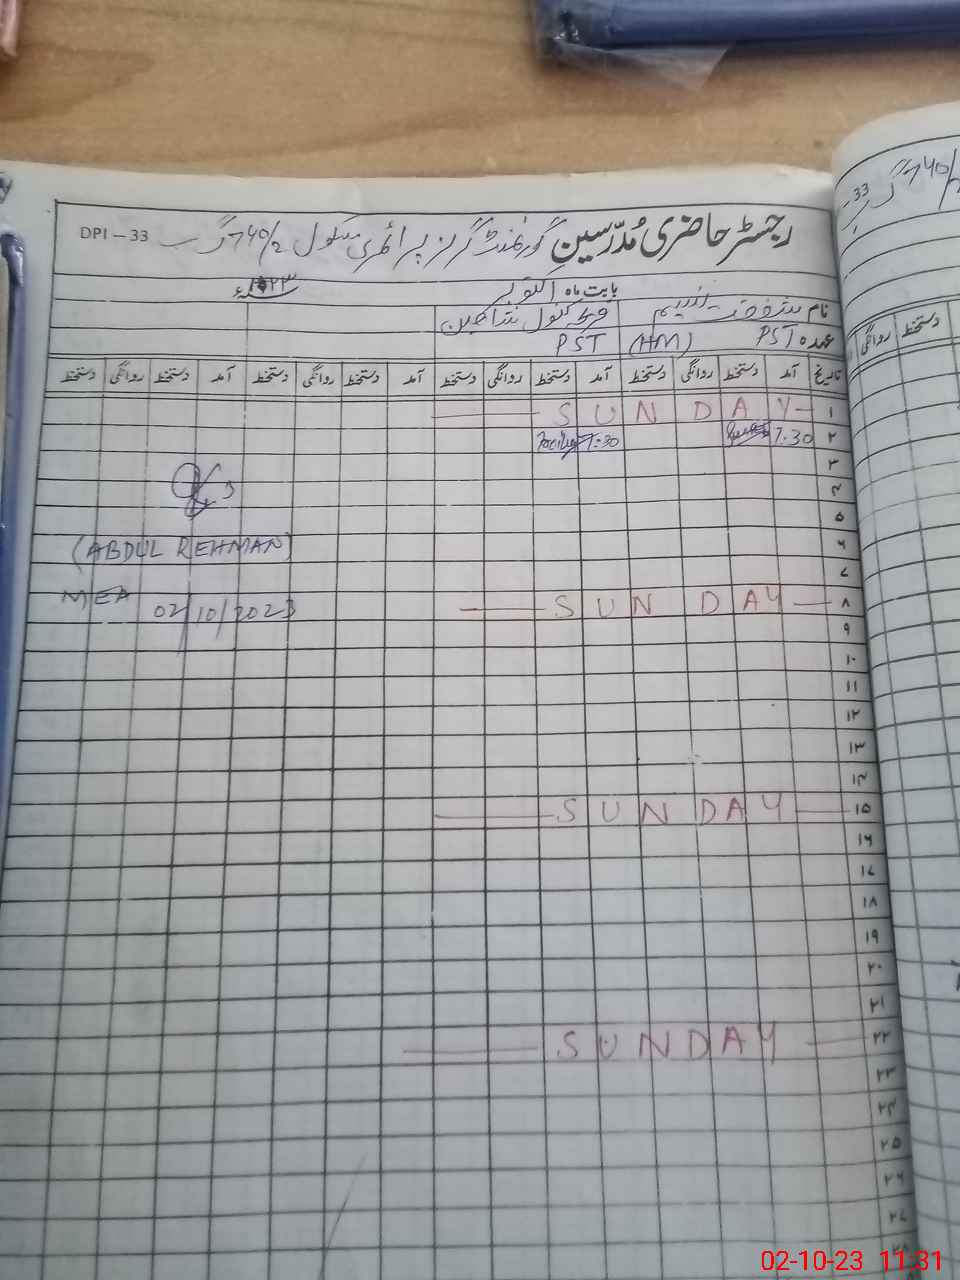 DPI - 33
رجسٹر حاضری مُدرّسین گورنمنٹ گرلز پرائمری سکول 740/2 گ ب
بابت ماہ اکتوبر ۲۳
نام
عہدہ PST (HM) PST
تاریخ آمد دستخط روانگی دستخط آمد دستخط روانگی دستخط آمد دستخط روانگی دستخط آمد دستخط روانگی دستخط
۱ SUNDAY
۲ 7:30 7:30
۳
۴
۵
۶
(ABDUL REHMAN)
۷
MEA 02/10/2023
۸ SUNDAY
۹
۱۰
۱۱
۱۲
۱۳
۱۴
۱۵ SUNDAY
۱۶
۱۷
۱۸
۱۹
۲۰
۲۱
۲۲ SUNDAY
۲۳
۲۴
۲۵
۲۶
۲۷
۲۸
33 -
740/2 گ ب
روانگی دستخط
02-10-23 11:31